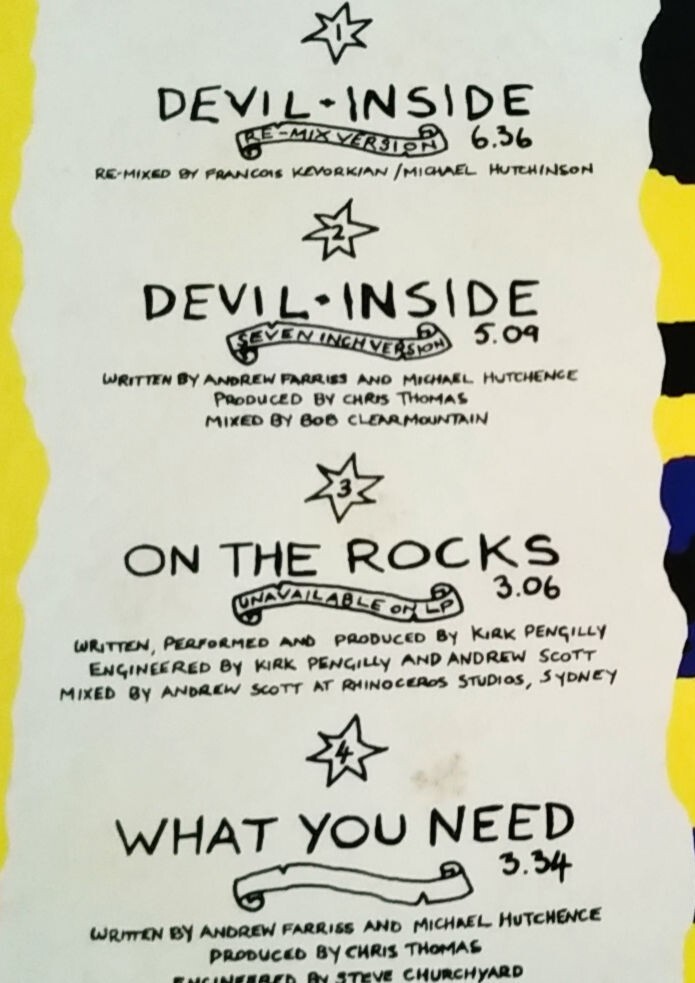 1
DEVIL·INSIDE
RE-MIX VERSION 6.36
RE-MIXED BY FRANCOIS KEVORKIAN/MICHAEL HUTCHINSON
2
DEVIL·INSIDE
SEVEN INCH VERSION 5.09
WRITTEN BY ANDREW FARRISS AND MICHAEL HUTCHENCE
PRODUCED BY CHRIS THOMAS
MIXED BY BOB CLEARMOUNTAIN
3
ON THE ROCKS
UNAVAILABLE ON LP 3.06
WRITTEN, PERFORMED AND PRODUCED BY KIRK PENGILLY
ENGINEERED BY KIRK PENGILLY AND ANDREW SCOTT
MIXED BY ANDREW SCOTT AT RHINOCEROS STUDIOS, SYDNEY
4
WHAT YOU NEED
3.34
WRITTEN BY ANDREW FARRISS AND MICHAEL HUTCHENCE
PRODUCED BY CHRIS THOMAS
ENGINEERED BY STEVE CHURCHYARD